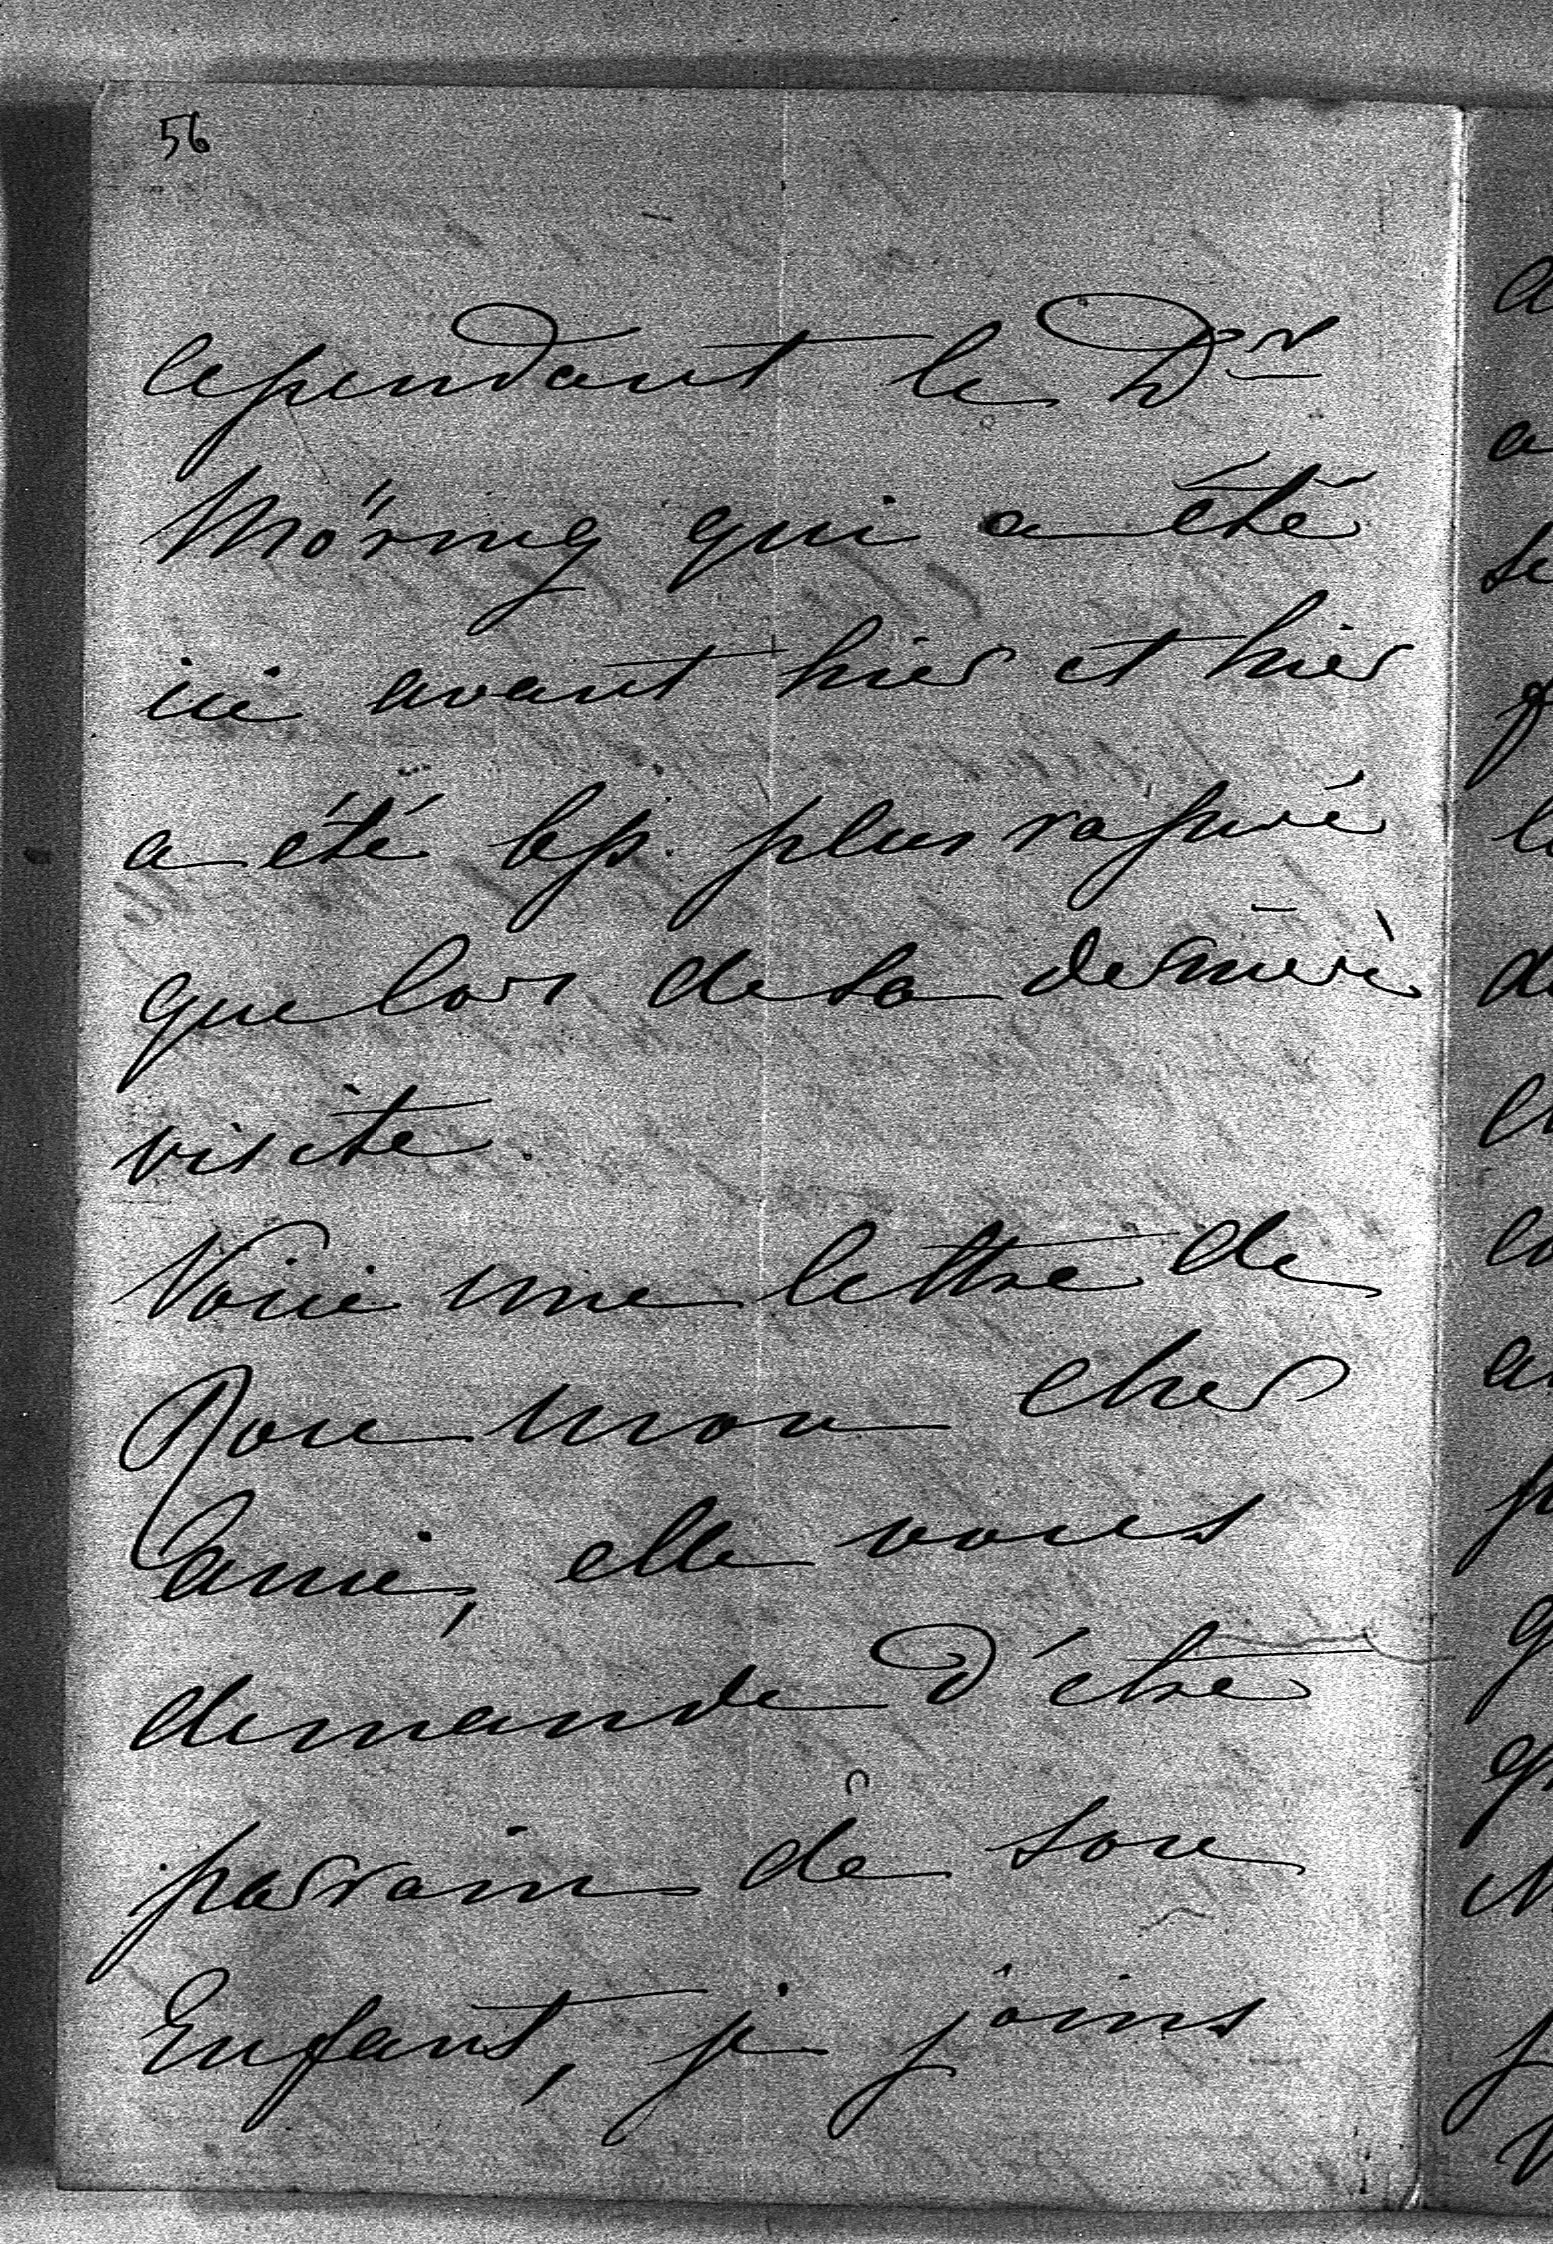 56
cependant le Dr
Möring qui a été
ici avant hier et hier
a été bp. plus rassuré
que lors de sa dernière
visite.
Voici une lettre de
mon cher
ami, elle vous
demande d'être
parrain de son
Enfant, je joins